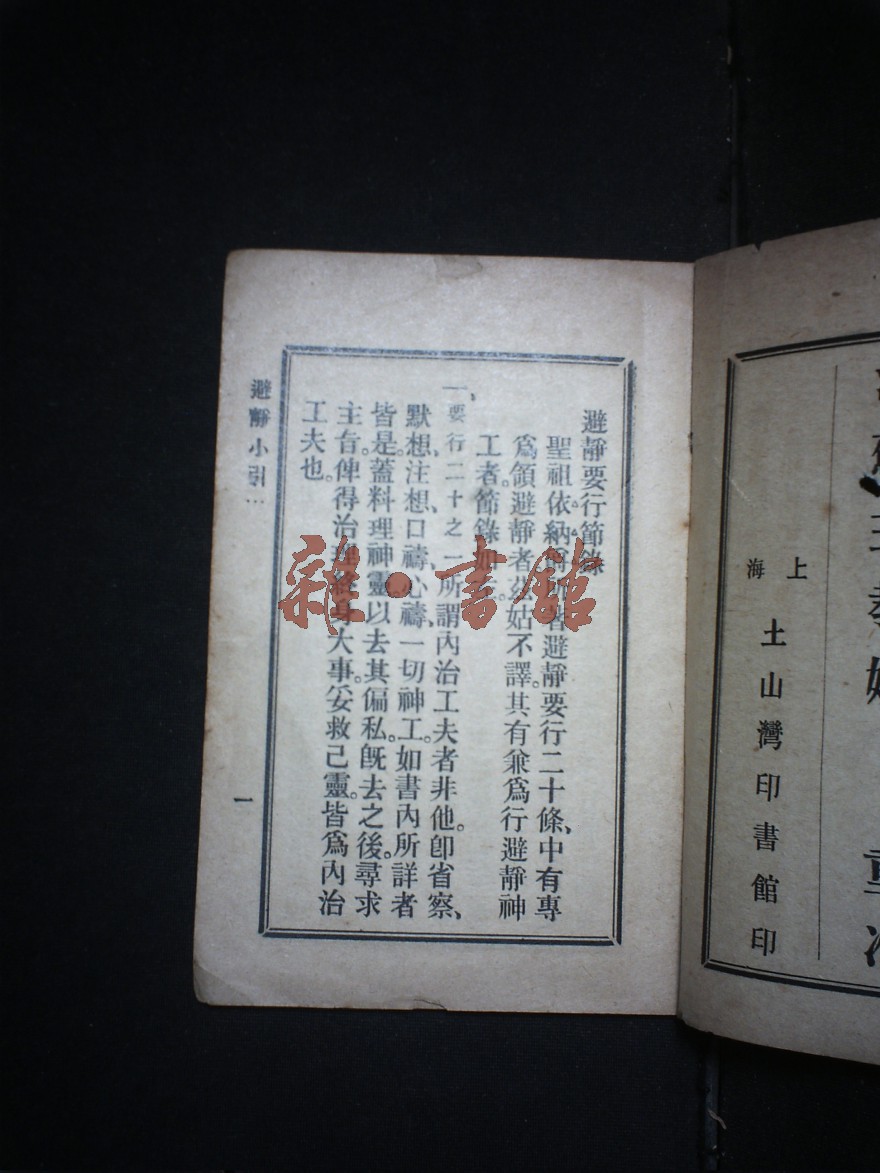 上海
土山灣印書館印
避靜要行節錄
聖祖依納爵所著避靜要行二十條、中有專
爲領避靜者。茲姑不譯。其有兼爲行避靜神
工者。節錄如左。
一、要行二十之一、所謂內治工夫者非他。卽省察、
默想、注想、口禱、心禱、一切神工。如書內所詳者
皆是。蓋料理神靈。以去其偏私。旣去之後。尋求
主旨。俾得治理終身大事。妥救己靈。皆爲內治
工夫也。
避靜小引…
一
雜·書館